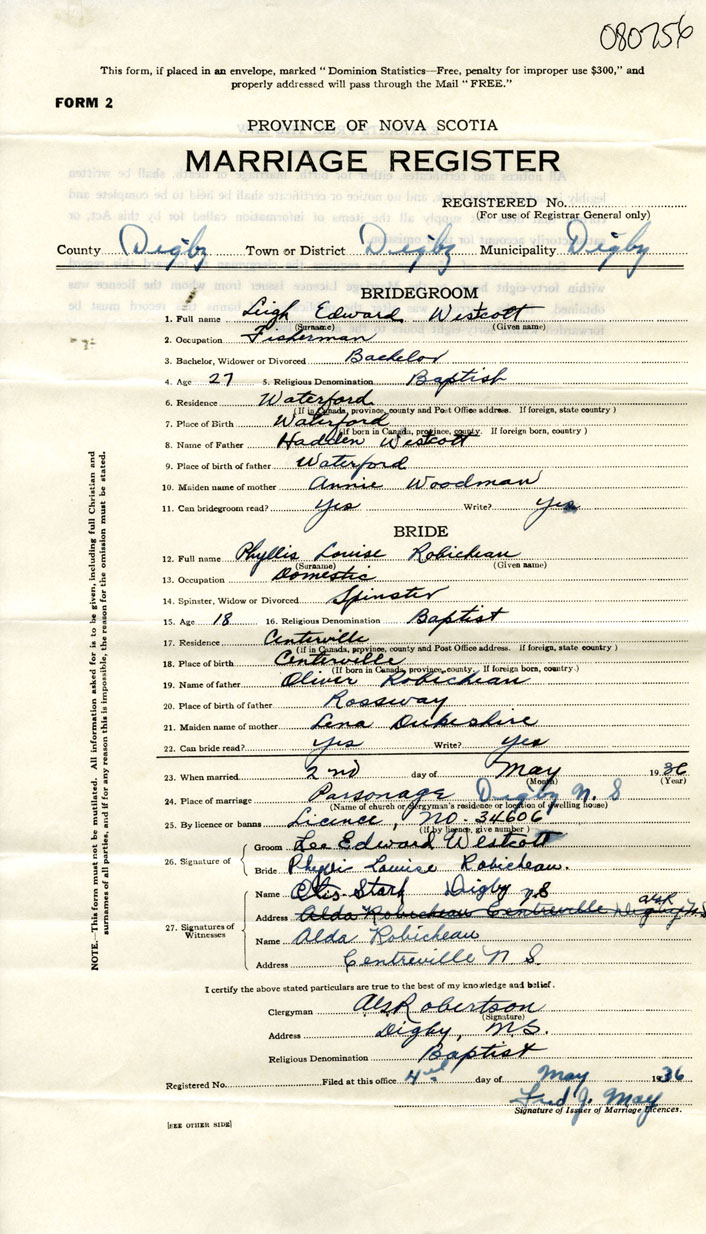 080756
This form, if placed in an envelope, marked "Dominion Statistics—Free, penalty for improper use $300," and
properly addressed will pass through the Mail "FREE."
FORM 2
PROVINCE OF NOVA SCOTIA
MARRIAGE REGISTER
REGISTERED No.
(For use of Registrar General only)
County Digby Town or District Digby Municipality Digby
BRIDEGROOM
1. Full name Leigh Edward Westcott
(Surname) (Given name)
2. Occupation Fisherman
3. Bachelor, Widower or Divorced Bachelor
4. Age 27 5. Religious Denomination Baptist
6. Residence Waterford
(If in Canada, province, county and Post Office address. If foreign, state country)
7. Place of Birth Waterford
(If born in Canada, province, county. If foreign born, country)
8. Name of Father Hadden Westcott
9. Place of birth of father Waterford
10. Maiden name of mother Annie Woodman
11. Can bridegroom read? Yes Write? Yes
BRIDE
12. Full name Phyllis Louise Robicheau
(Surname) (Given name)
13. Occupation Domestic
14. Spinster, Widow or Divorced Spinster
15. Age 18 16. Religious Denomination Baptist
17. Residence Centerville
(If in Canada, province, county and Post Office address. If foreign, state country)
18. Place of birth Centerville
(If born in Canada, province, county. If foreign born, country.)
19. Name of father Oliver Robicheau
20. Place of birth of father Rossway
21. Maiden name of mother Lena Dukeshire
22. Can bride read? Yes Write? Yes
23. When married 2nd day of May 1936
(Month) (Year)
24. Place of marriage Parsonage Digby N. S
(Name of church or clergyman's residence or location of dwelling house)
25. By licence or banns Licence, No. 34606
(If by licence, give number)
26. Signature of
Groom Lee Edward Westcott
Bride Phyllis Louise Robicheau.
27. Signatures of Witnesses
Name Otis Stark Digby N.S
Address Alda Robicheau Centreville Digby N.S
Name Alda Robicheau
Address Centreville N S.
I certify the above stated particulars are true to the best of my knowledge and belief.
Clergyman Robertson
(Signature)
Address Digby, N.S.
Religious Denomination Baptist
Registered No. Filed at this office 4th day of May 1936
Fred J. May
Signature of Issuer of Marriage Licences.
[SEE OTHER SIDE]
NOTE.—This form must not be mutilated. All information asked for is to be given, including full Christian and
surnames of all parties, and if for any reason this is impossible, the reason for the omission must be stated.